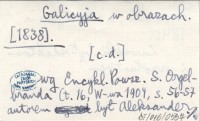 Galicyja w obrazach.
[1838].
[c.d.]
wg Encykl. Powsz. S. Orgel-
branda (t. 16, W-wa 1901, s. 56-57
autorem był Aleksander